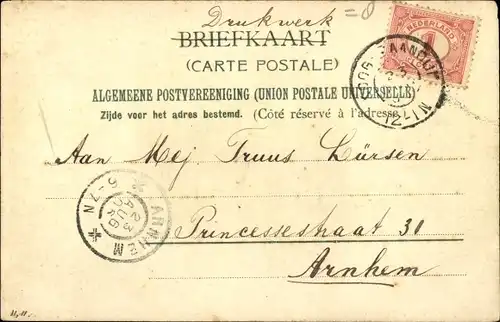 Drukwerk
BRIEFKAART
(CARTE POSTALE)
ALGEMEENE POSTVEREENIGING (UNION POSTALE UNIVERSELLE)
Zijde voor het adres bestemd. (Côté réservé à l'adresse.)
NEDERLAND
1
12-1N
Aan Mej Truus Lürsen
ARNHEM
23 AUG
5-7N
Princessestraat 31
Arnhem